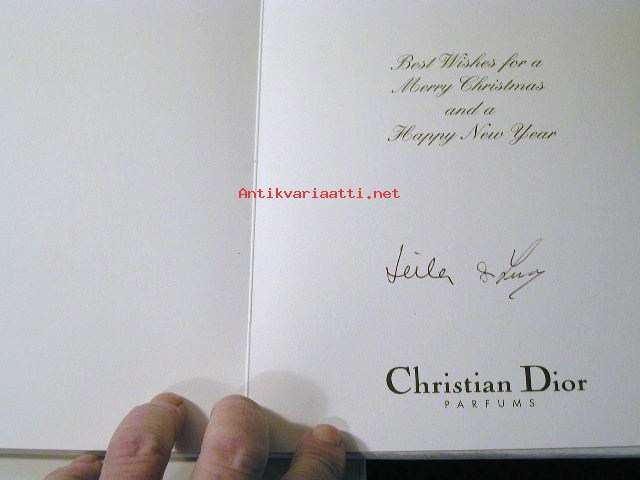 Best Wishes for a
Merry Christmas
and a
Happy New Year
Antikvariaatti.net
Leila &
Christian Dior
PARFUMS